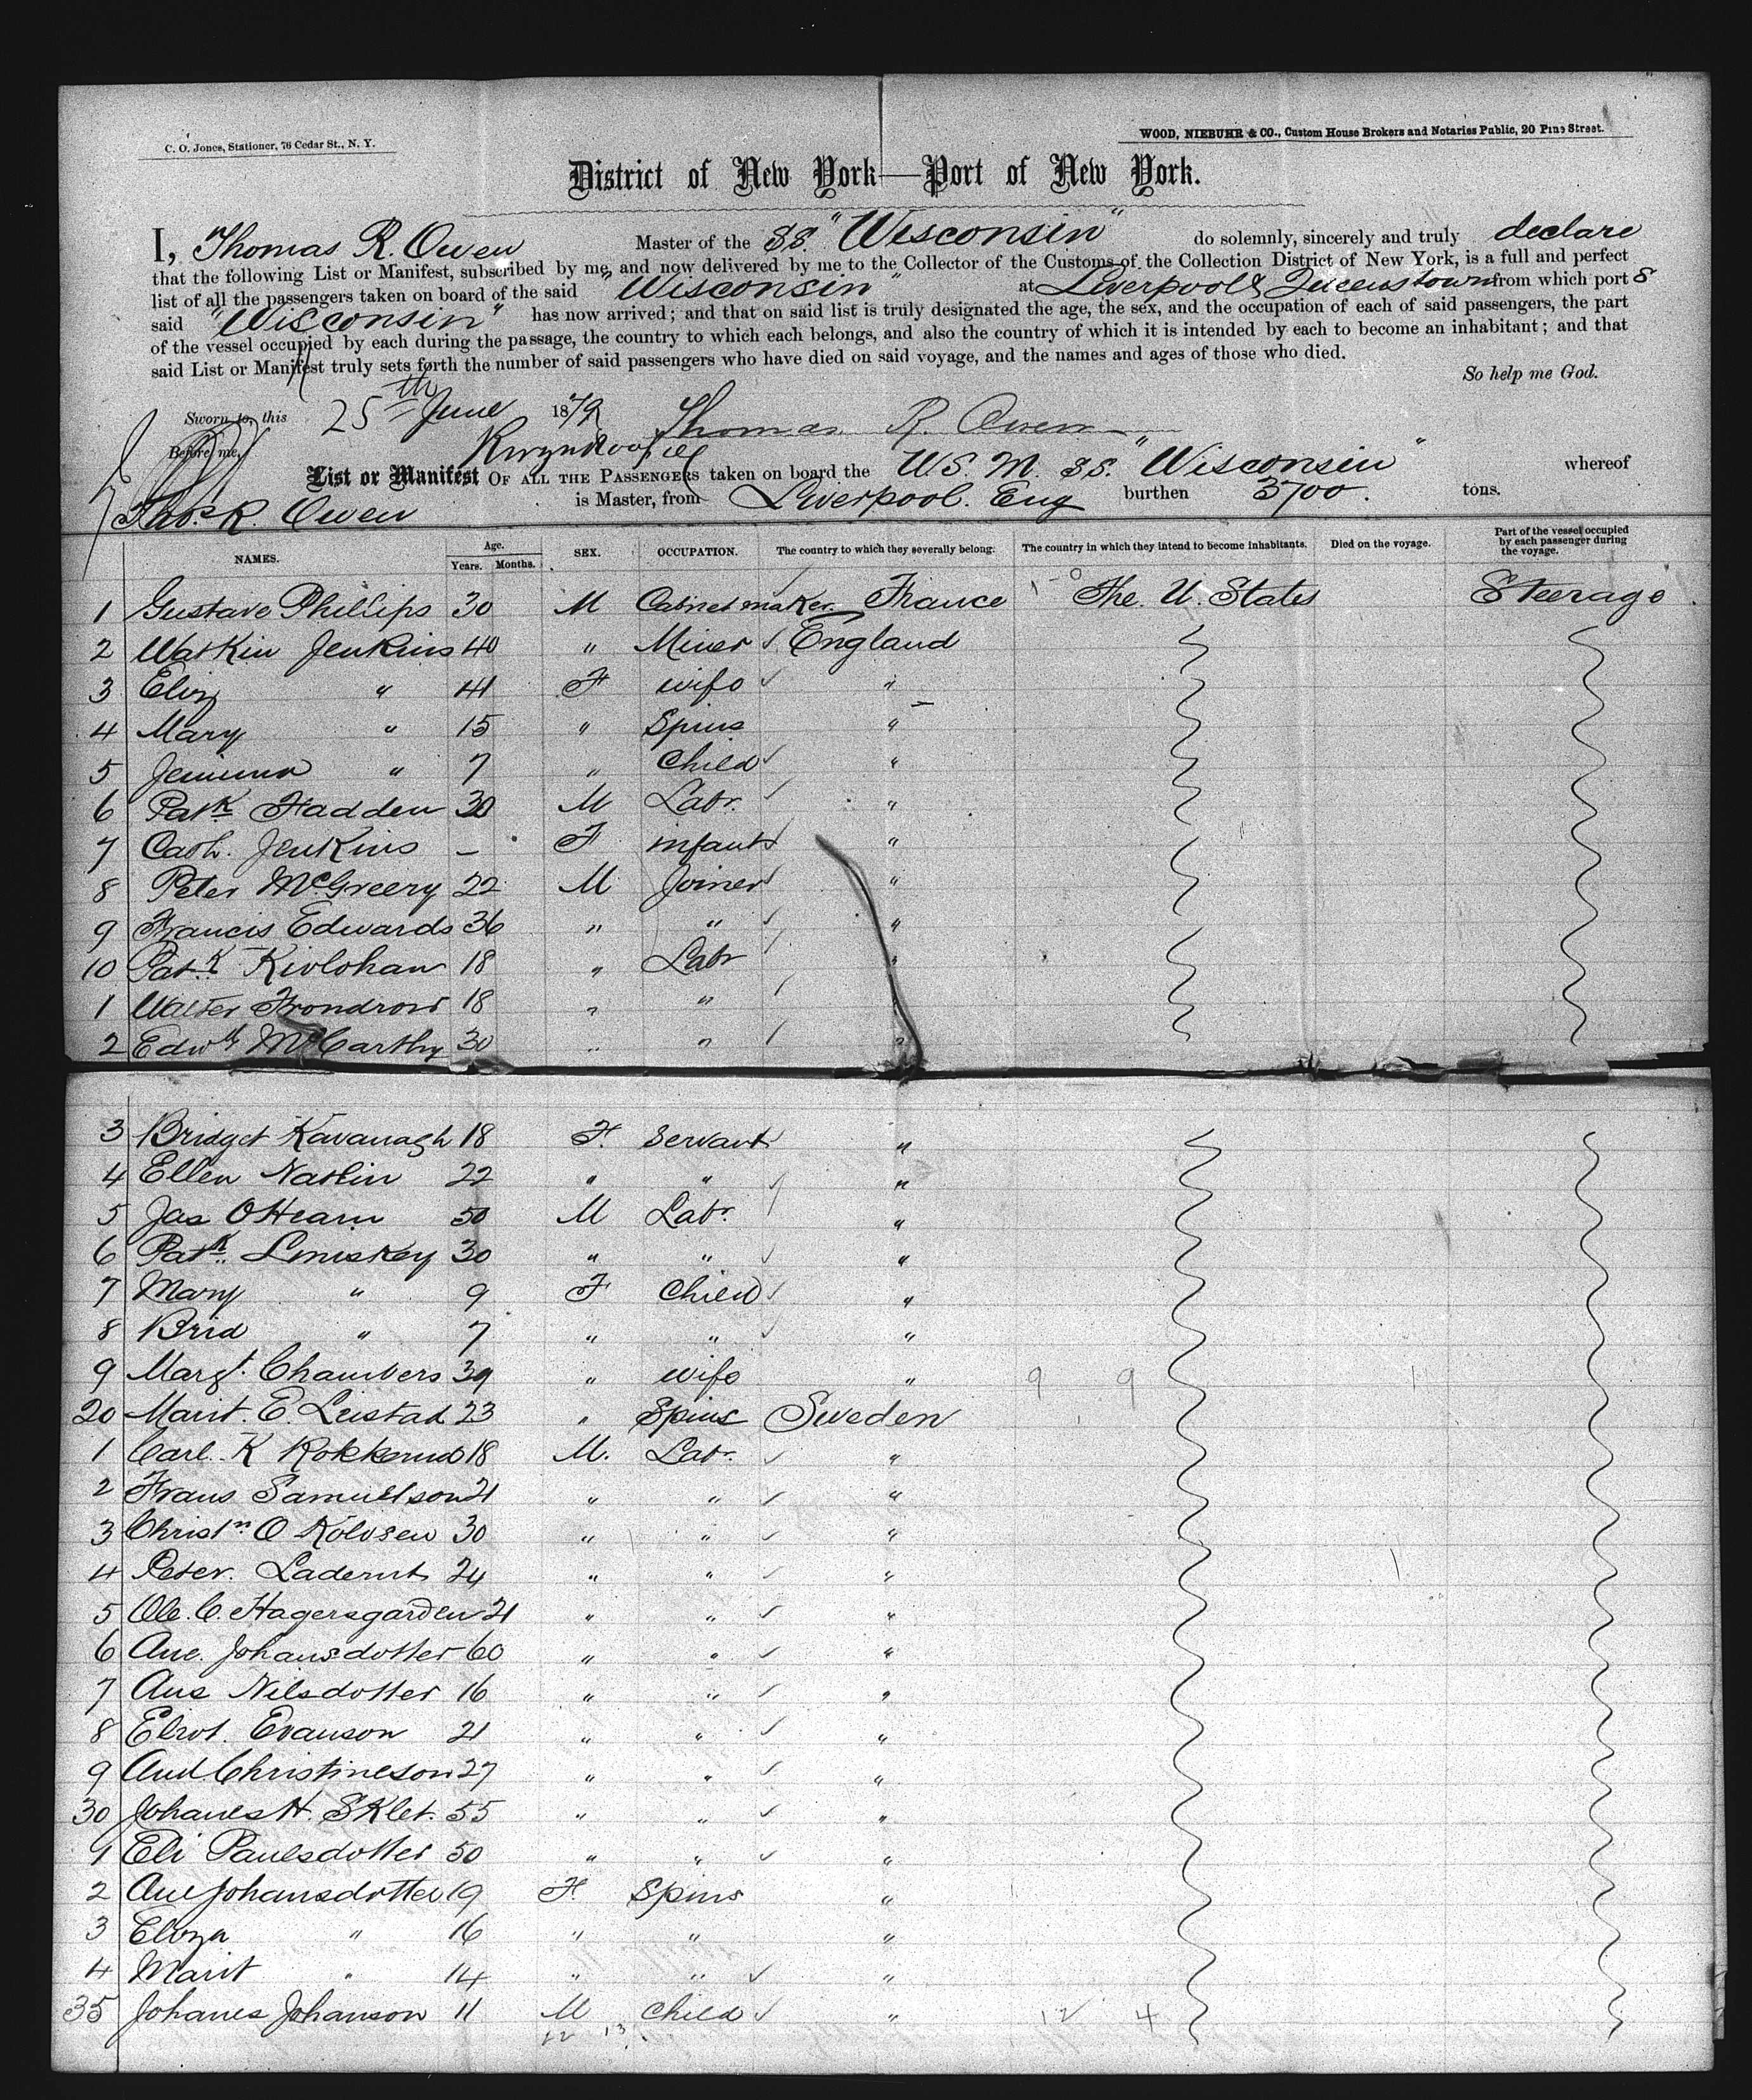 C. O. Jones, Stationer, 76 Cedar St., N. Y.
WOOD, NIEBUHR & CO., Custom House Brokers and Notaries Public, 20 Pine Street.
District of New York—Port of New York.
I, Thomas R. Owen Master of the SS. "Wisconsin" do solemnly, sincerely and truly declare
that the following List or Manifest, subscribed by me, and now delivered by me to the Collector of the Customs of the Collection District of New York, is a full and perfect
list of all the passengers taken on board of the said "Wisconsin" at Liverpool & Queenstown from which port s
said "Wisconsin" has now arrived; and that on said list is truly designated the age, the sex, and the occupation of each of said passengers, the part
of the vessel occupied by each during the passage, the country to which each belongs, and also the country of which it is intended by each to become an inhabitant; and that
said List or Manifest truly sets forth the number of said passengers who have died on said voyage, and the names and ages of those who died.
So help me God.
Sworn to, this 25th June 1879 Thomas R. Owen
Before me,
List or Manifest OF ALL THE PASSENGERS taken on board the U.S.M. SS. "Wisconsin" whereof
Thos. R. Owen is Master, from Liverpool. Eng burthen 3700. tons.
NAMES. Age. Years. Months. SEX. OCCUPATION. The country to which they severally belong. The country in which they intend to become inhabitants. Died on the voyage. Part of the vessel occupied by each passenger during the voyage.
1 Gustave Phillips 30 M Cabinet maker France The U. States Steerage
2 Watkin Jenkins 40 " Miner England
3 Eliz " 41 F wife "
4 Mary " 15 " Spins "
5 Jemima " 7 " Child "
6 Patk Fadden 30 M Labr. "
7 Cath. Jenkins – F infant "
8 Peter McGreery 22 M Joiner "
9 Francis Edwards 36 " " "
10 Patk Kivlohan 18 " Labr "
1 Walter 18 " " "
2 Edwd McCarthy 30 " " "
3 Bridget Kavanagh 18 F. Servant "
4 Ellen Naslin 22 " " "
5 Jas OHearn 50 M Labr. "
6 Patk. Lmiskey 30 " " "
7 Mary " 9 F Child "
8 Brid " 7 " " "
9 Margt. Chambers 39 " wife " 9 9
20 Marit. E. Leistad 23 " Spins Sweden
1 Carl. K Rokkerud 18 M. Labr. "
2 Frans Samuelson 21 " " "
3 Christn. O Kolosen 30 " " "
4 Peter. Laderut 24 " " "
5 Ole. C. Hagersgarden 21 " " "
6 Ane. Johansdotter 60 " " "
7 Ans Nilsdotter 16 " " "
8 Evanson 21 " " "
9 And. Christineson 27 " " "
30 Johanes H. Sklet. 55 " " "
1 Eli Paulsdotter 50 " " "
2 Ane Johansdotter 19 F. Spins "
3 " 16 " " "
4 Marit " 14 " " "
35 Johanes Johanson 11 M Child " 12 4
12 13